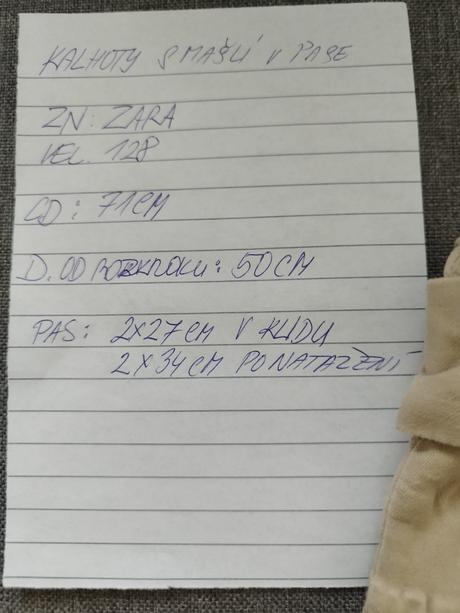 KALHOTY S MAŠLÍ V PASE
ZN: ZARA
VEL. 128
CD: 71CM
D. OD ROZKROKU: 50CM
PAS: 2X27CM V KLIDU
2X34CM PO NATAŽENÍ